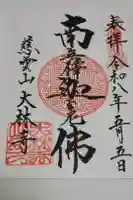 奉拝 令和八年五月五日
南無釈迦牟尼佛
慈雲山 大林寺